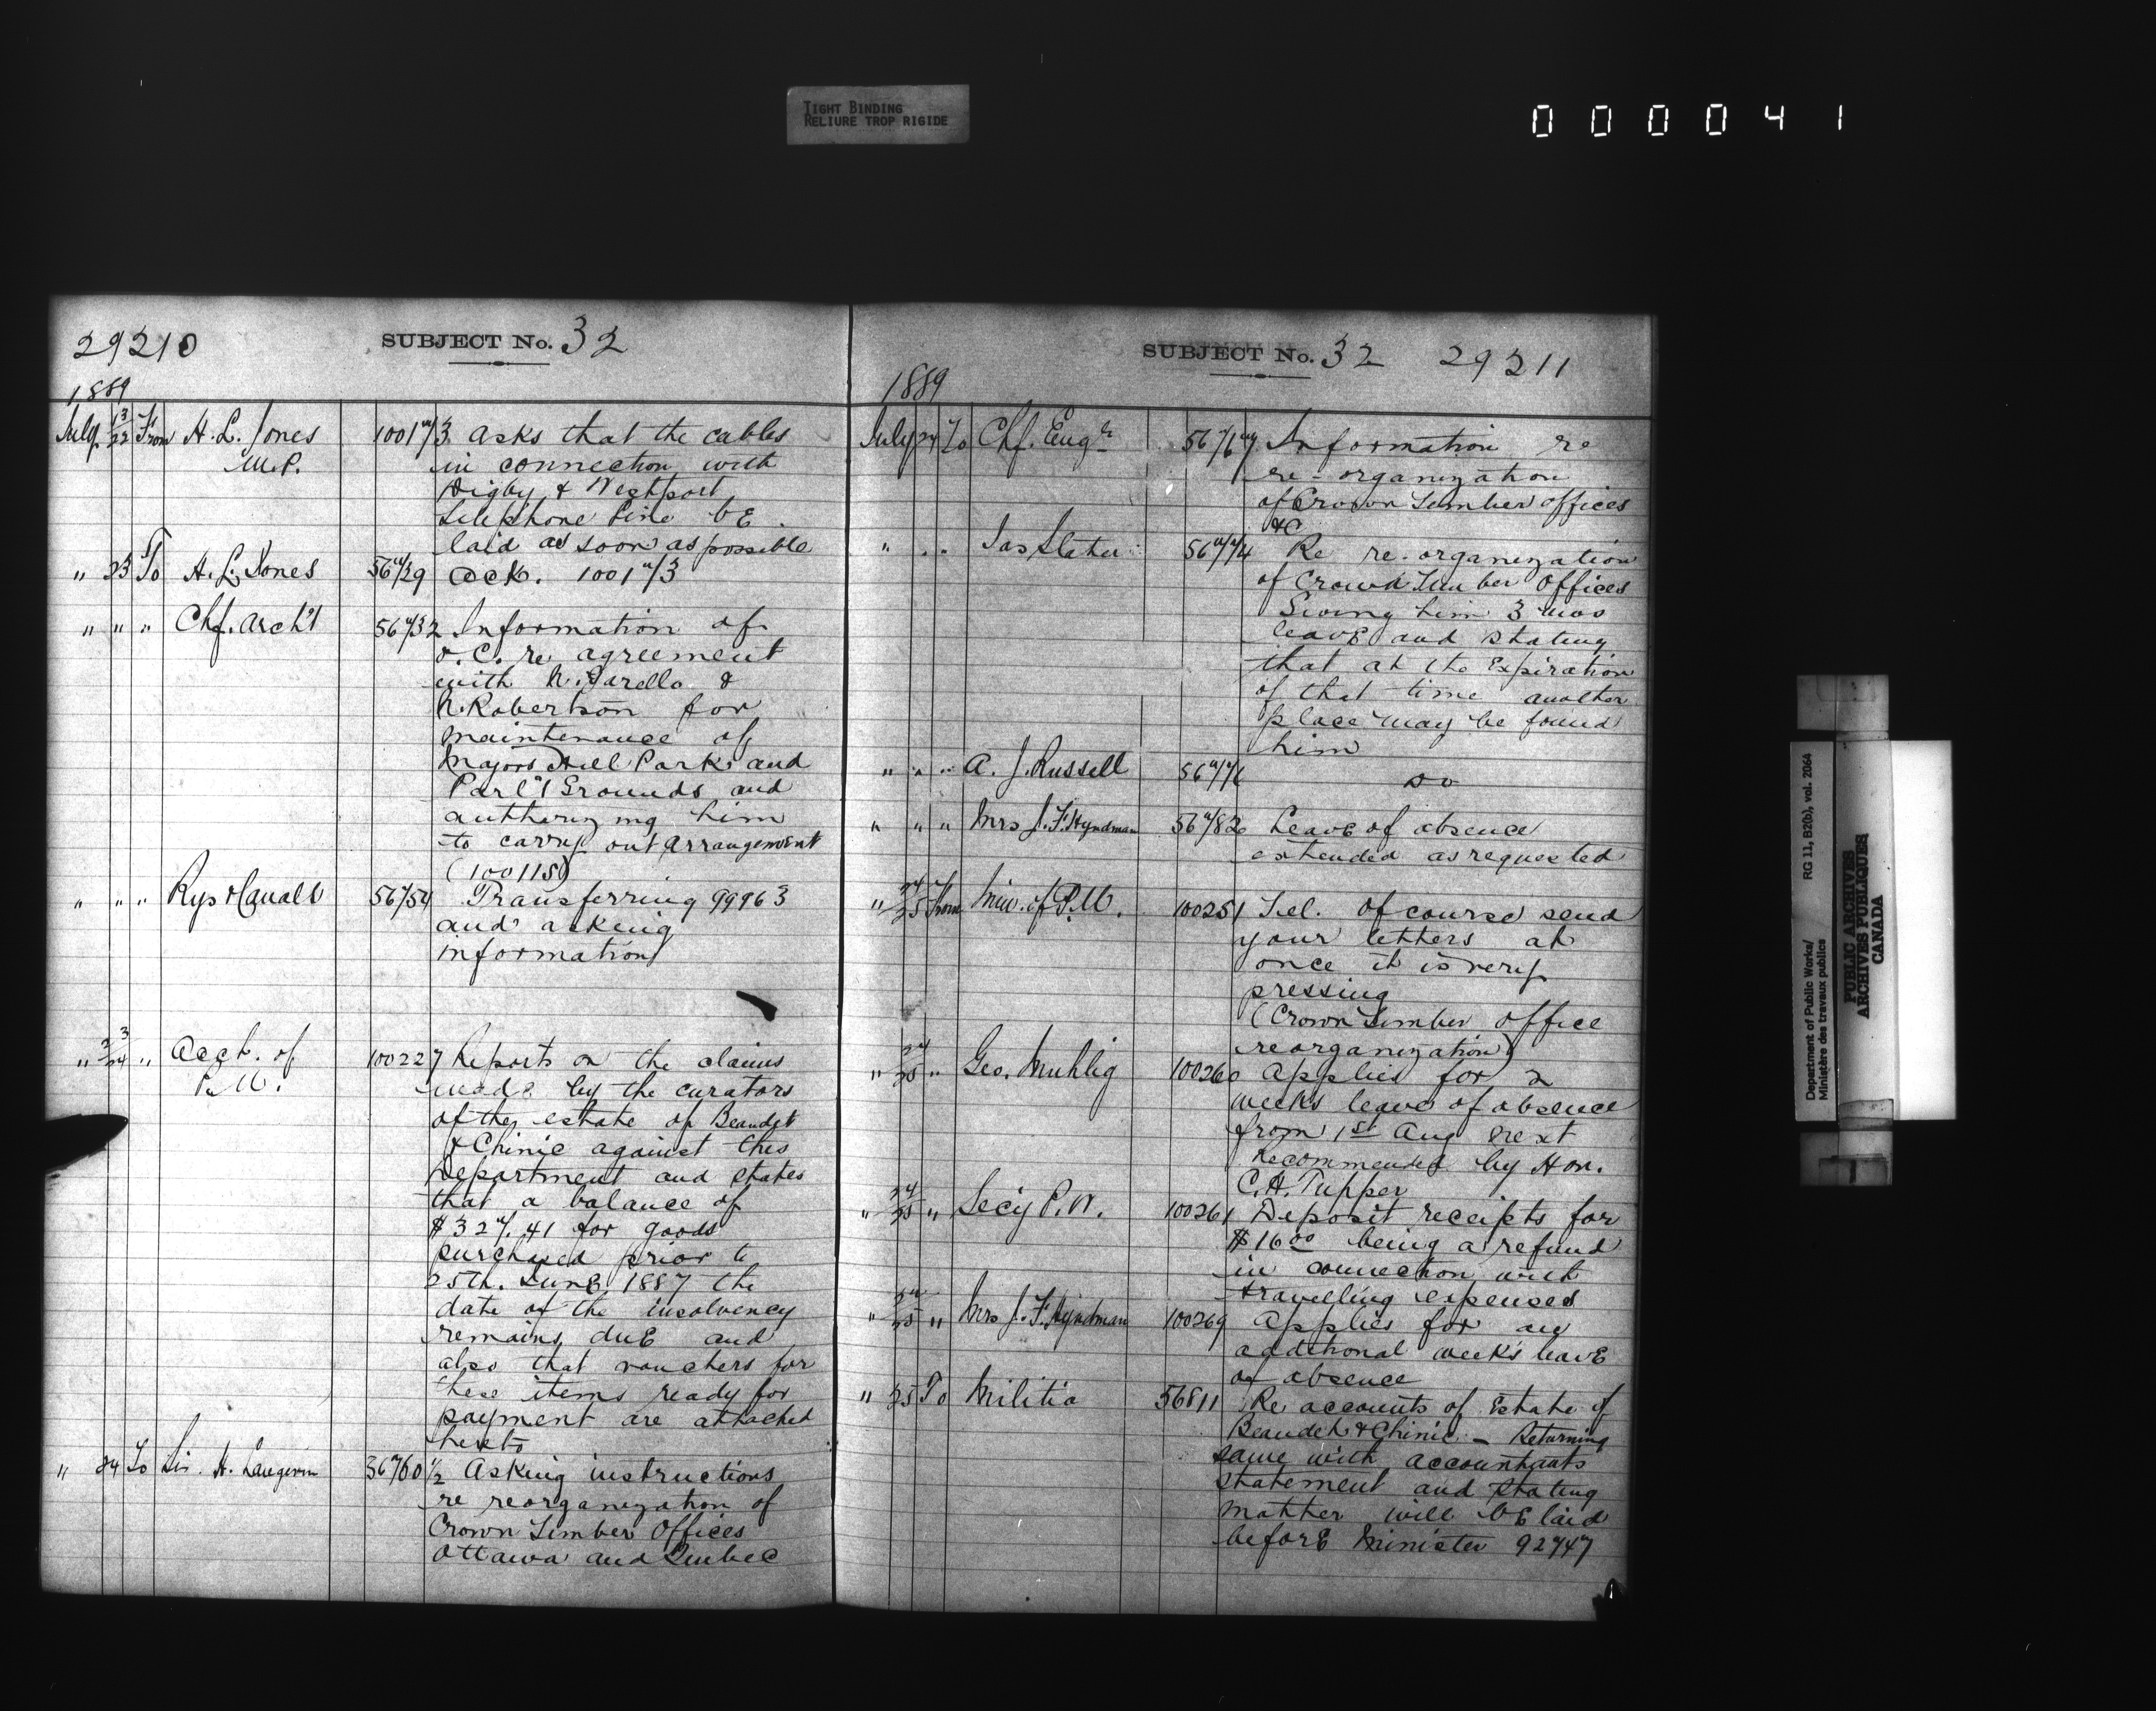 TIGHT BINDING
RELIURE TROP RIGIDE
000041
29210 SUBJECT No. 32
1889
July 13/22 From H. L. Jones 100173 asks that the cables
M.P. in connection with
Digby & Westport
telephone line be
laid as soon as possible
" 23 To H. L. Jones 56729 ack. 100173
" " " Chf. Arch't 56732 Information of
O.C. re agreement
with N. &
N. Robertson for
maintenance of
Majors Hill Park and
Parl't Grounds and
authorizing him
to carry out arrangement
(100115)
" " " Rys & Canals 56754 Transferring 99963
and asking
information
" 23/24 " Acct. of 100227 Reports on the claims
P.W. made by the curators
of the estate of Beaudet
& Chinic against this
Department and states
that a balance of
$327.41 for goods
purchased prior to
25th. June 1887 the
date of the insolvency
remains due and
also that vouchers for
these items ready for
payment are attached
hereto
" 24 To Sir H. Langevin 56760 1/2 Asking instructions
re reorganization of
Crown Timber Offices
Ottawa and Quebec
SUBJECT No. 32 29211
1889
July 24 To Chf. Engr 56767 Information re
re-organization
of Crown Timber offices
&c
" " " Jas Slater 56774 Re re-organization
of Crown Timber Offices
Giving him 3 mos
leave and stating
that at the expiration
of that time another
place may be found
him
" " " A. J. Russell 56776 do
" " " Mrs J. F. Hyndman 56782 Leave of absence
extended as requested
" 24/25 From Min. of P.W. 100251 Tel. of course send
your letters at
once it is very
pressing
(Crown Timber office
reorganization)
" 24/25 " Geo. Muhlig 100260 Applies for 2
weeks leave of absence
from 1st Aug next
recommended by Hon.
C.H. Tupper
" 24/25 " Secy P.W. 100261 Deposit receipts for
$16.00 being a refund
in connection with
travelling expenses
" 24/25 " Mrs J. F. Hyndman 100269 Applies for an
additional week's leave
of absence
" 25 To Militia 56811 Re accounts of Estate of
Beaudet & Chinic - Returning
same with accountants
statement and stating
matter will be laid
before Minister 92747
Department of Public Works/ RG 11, B2(b), vol. 2064
Ministère des travaux publics
PUBLIC ARCHIVES
ARCHIVES PUBLIQUES
CANADA